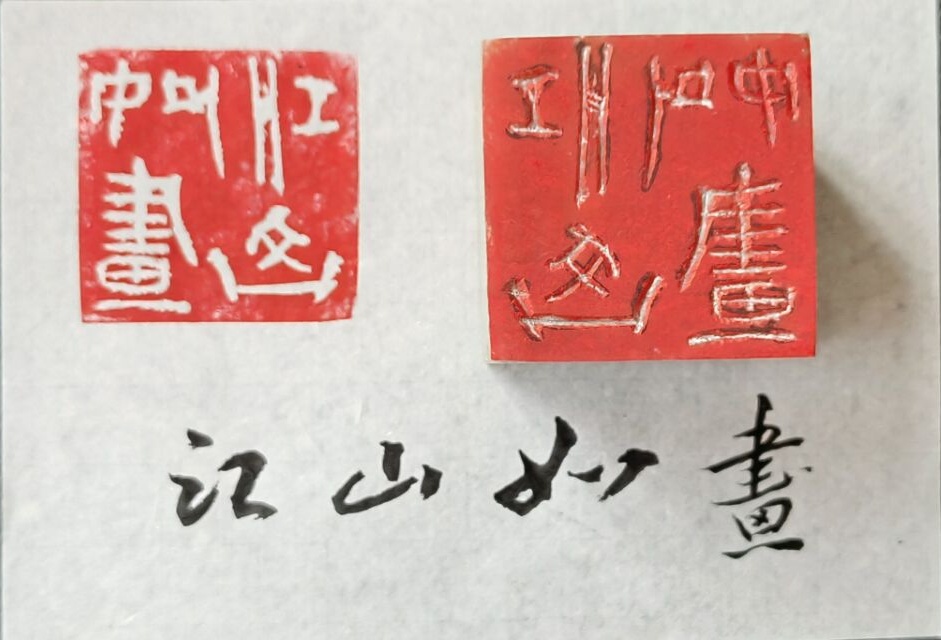 江山
如畫
江山
如畫
江山如畫